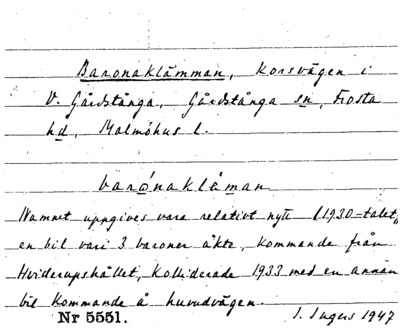 Baronaklämman, korsvägen i
V. Gårdstånga, Gårdstånga sn, Frosta
hd, Malmöhus l.
barónaklåman
Namnet uppgives vara relativt nytt (1930-talet,
en bil vari 3 baroner åkte, kommande från
Hviderupshållet, kolliderade 1933 med en annan
bil kommande å huvudvägen.
Nr 5551. I. Ingers 1947